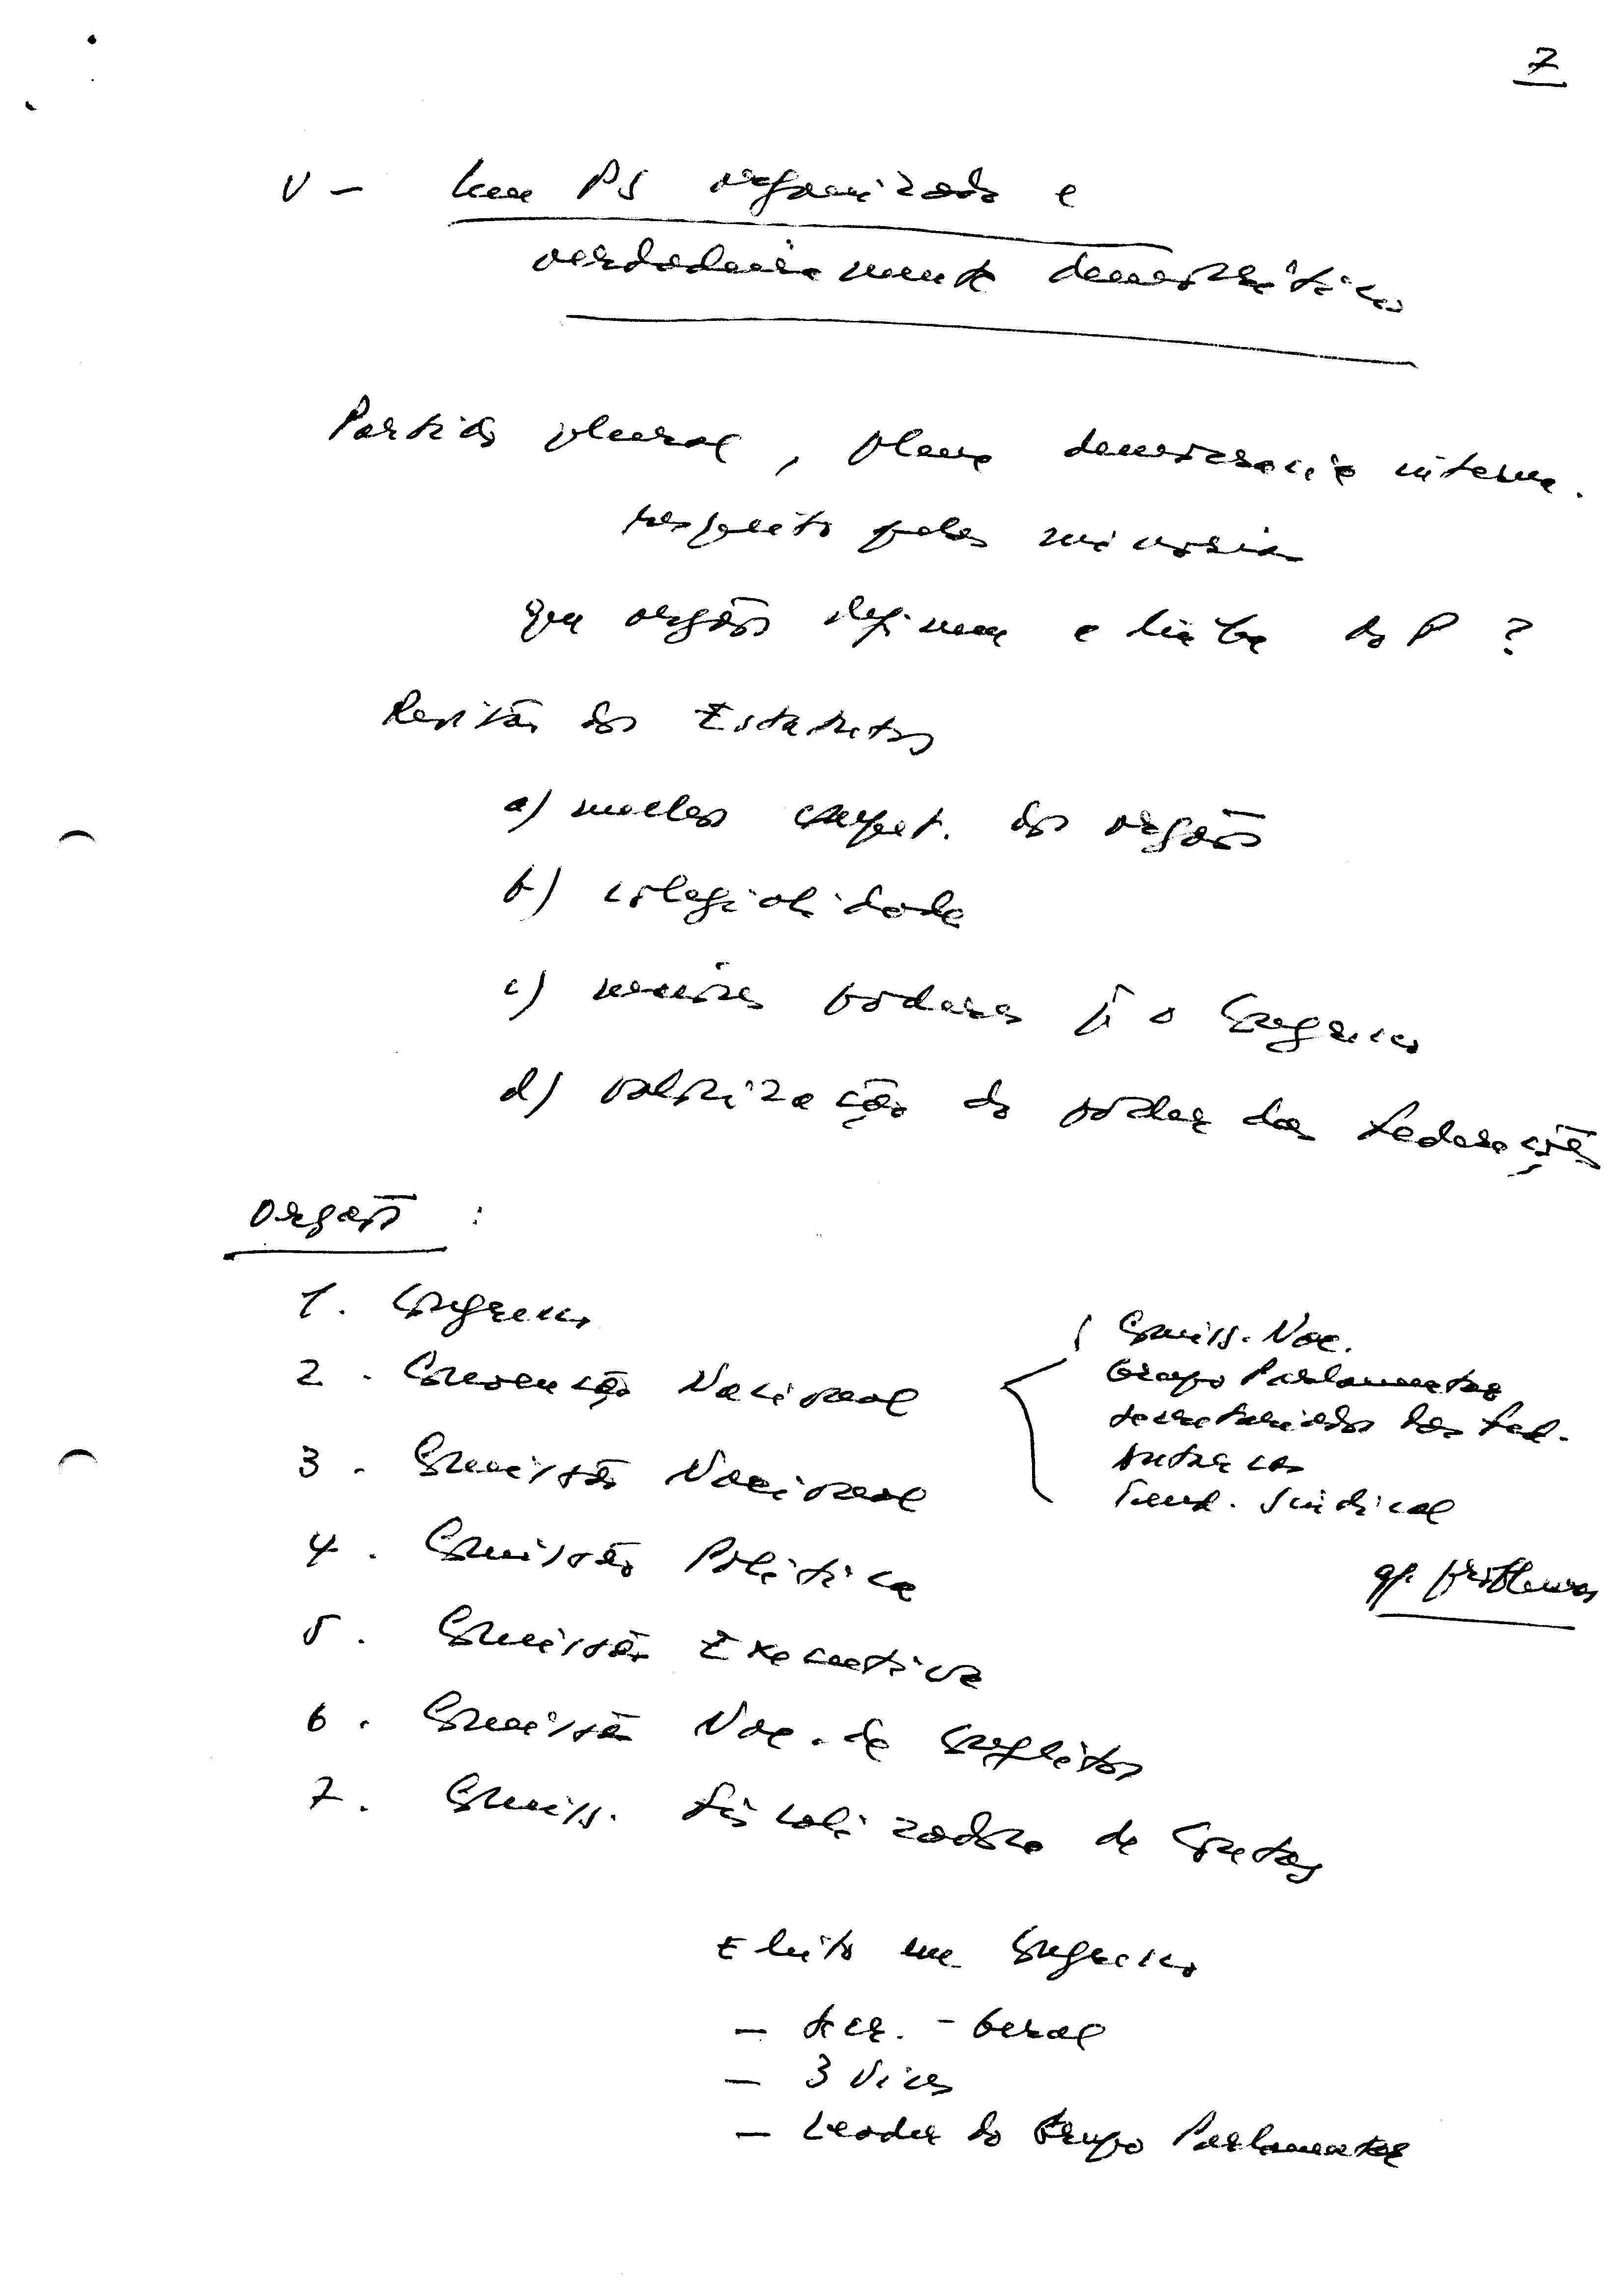 7
V - Um PS organizado e
verdadeiramente democrático
Partido plural, plena democracia interna.
respeito pelas minorias
que orgãos definem a linha do P ?
Revisão dos Estatutos
a) melhor compet. dos orgãos
b) colegialidade
c) maiores poderes p. o Congresso
d) valorização do poder das Federações
Orgãos :
1. Congresso
2. Convenção Nacional
3. Comissão Nacional
4. Comissão Política
5. Comissão Executiva
6. Comissão Nac. de Conflitos
7. Comiss. Fiscalizadora de Contas
Comiss. Nac.
Grupo Parlamentar
Secretariados das Fed.
Autarcas
Tend. Sindical
gr. problemas
Eleito em Congresso
- Secr. - Geral
- 3 Vices
- Leader do Grupo Parlamentar